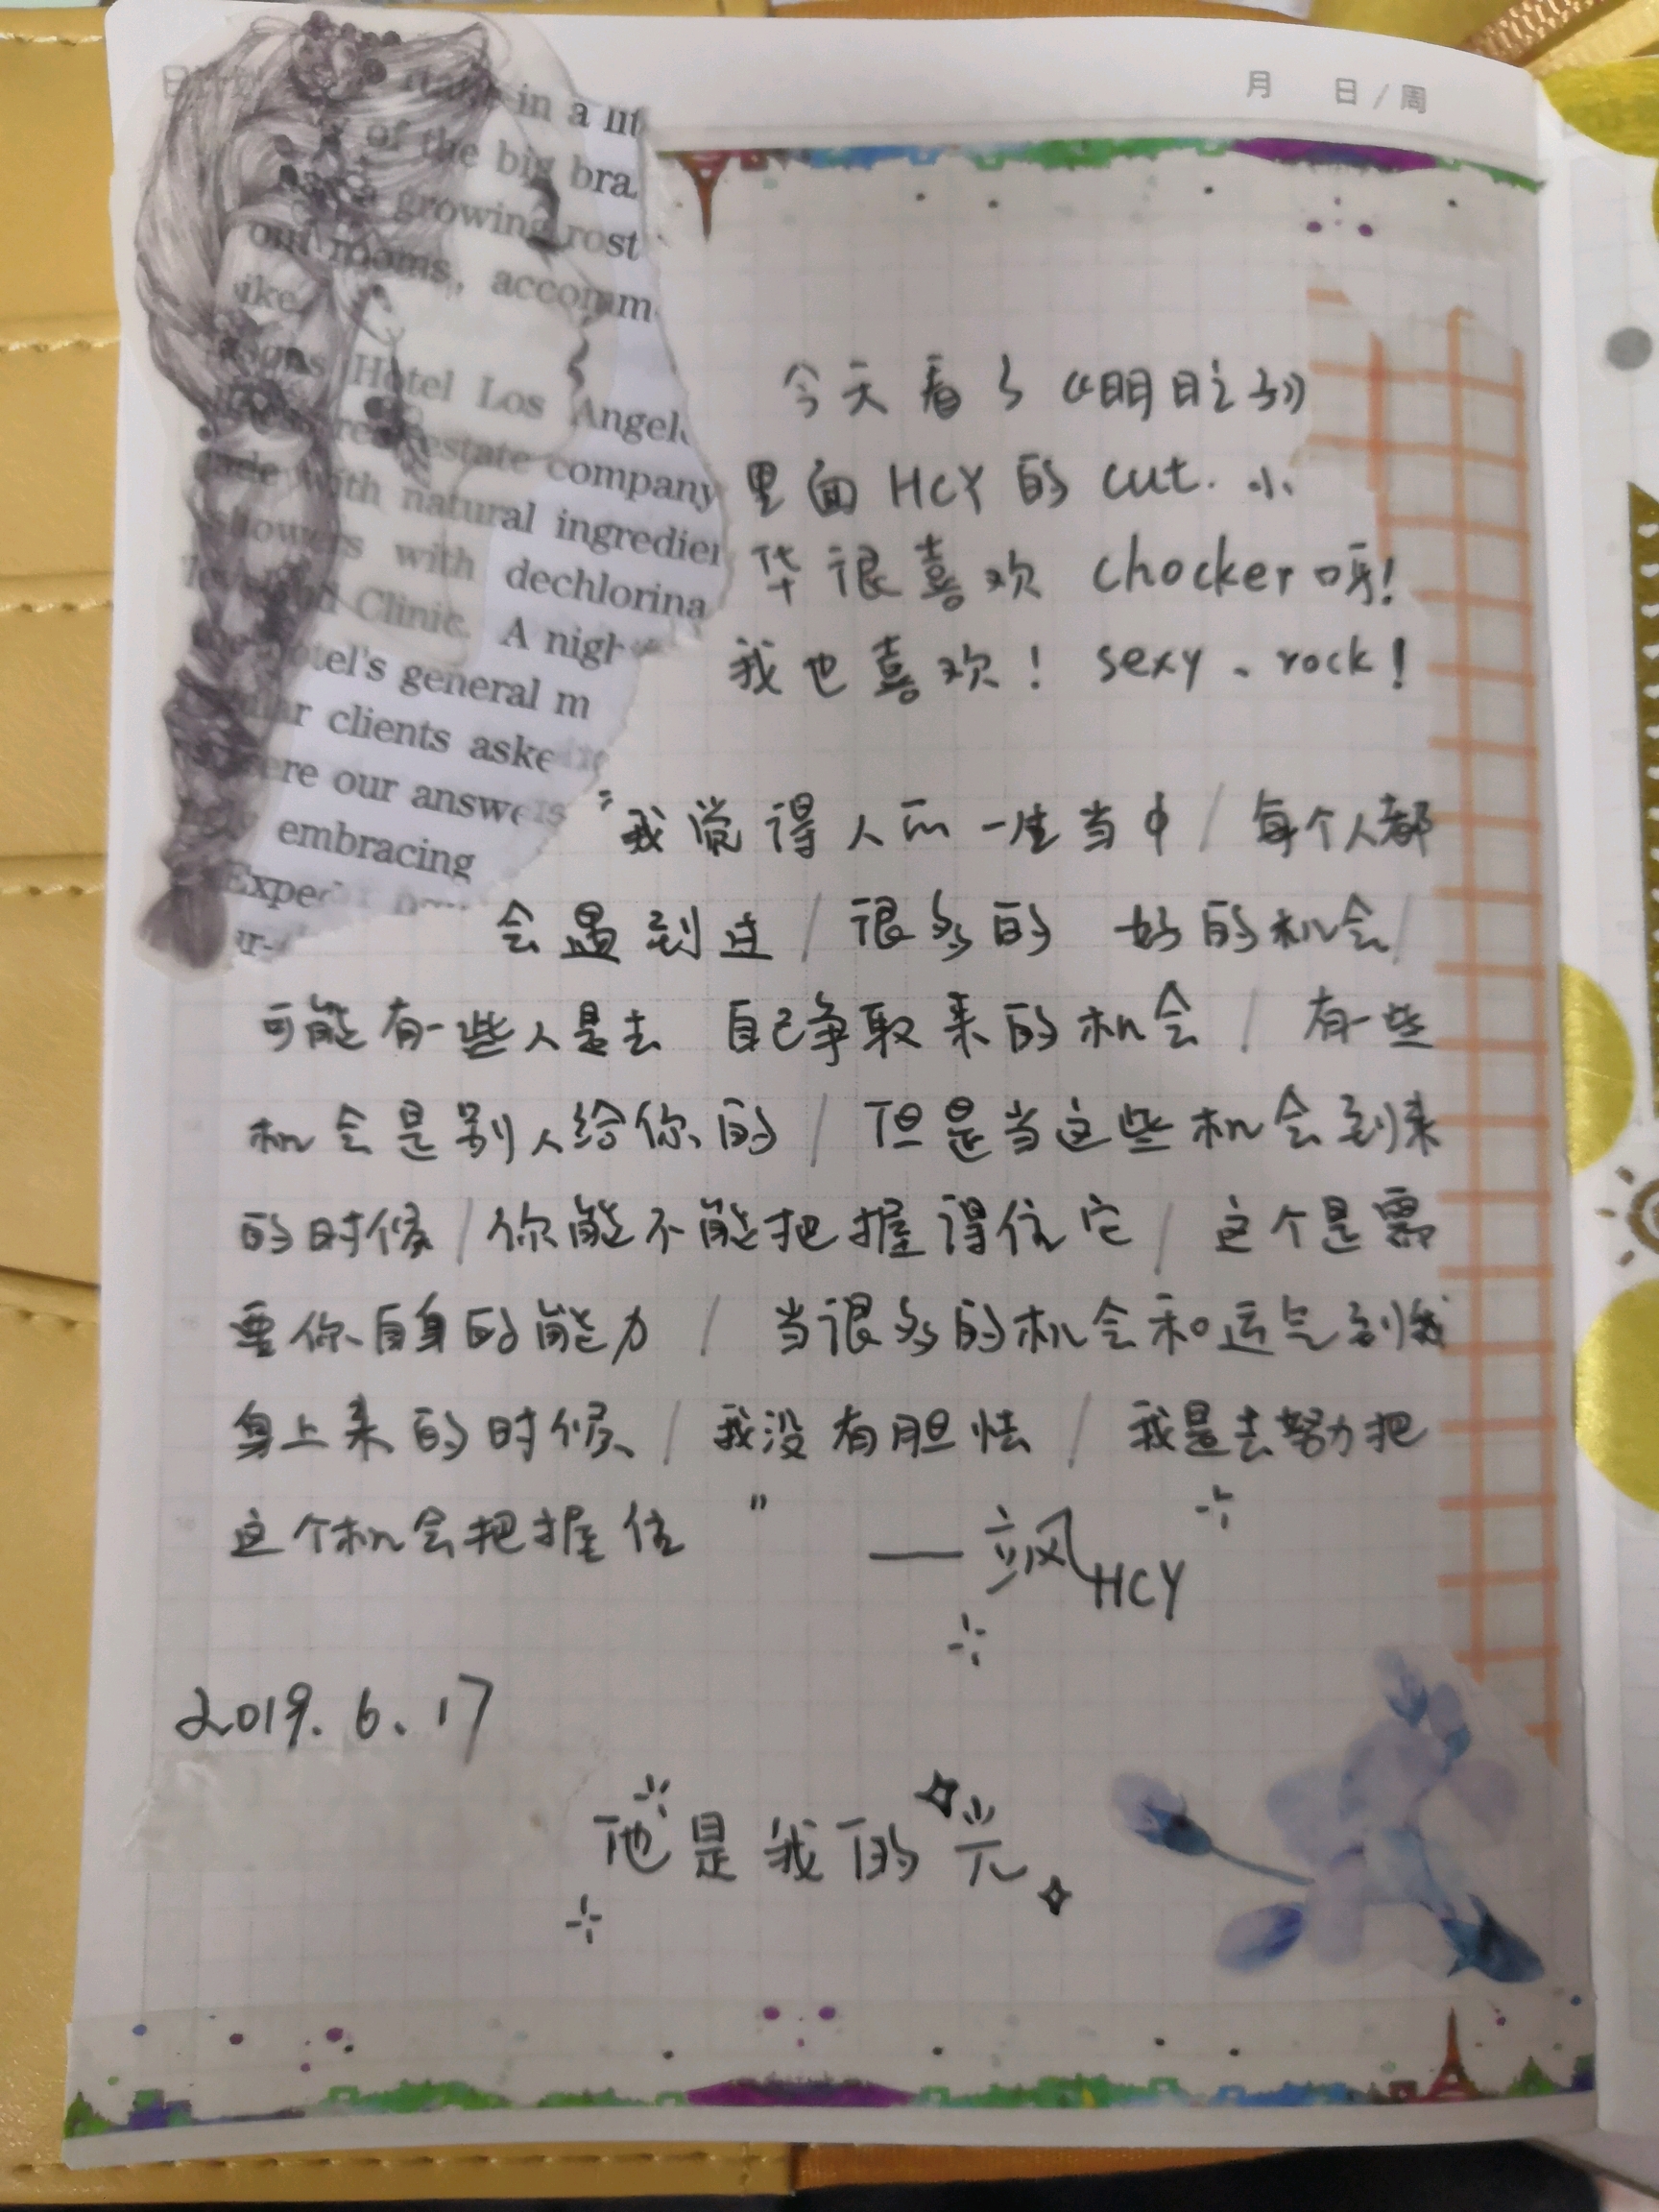 月 日/周
in a lit
of the big bra
growing rost
our rooms, accomm
ike
Hotel Los Angele
estate company
with natural ingredien
showers with dechlorina
Clinic. A nigh
otel's general m
clients aske
ere our answers
embracing
Exped
今天看了《明日之子》
里面 HCY 的 cut. 小
华很喜欢 chocker 呀!
我也喜欢! sexy、rock!
"我觉得人的一生当中/每个人都
会遇到过/很多的 好的机会/
可能有一些人是去 自己争取来的机会/有一些
机会是别人给你的/但是当这些机会到来
的时候/你能不能把握得住它/这个是需
要你自身的能力/当很多的机会和运气到我
身上来的时候/我没有胆怯/我是去努力把
这个机会把握住"
——飒HCY
2019.6.17
他是我的光